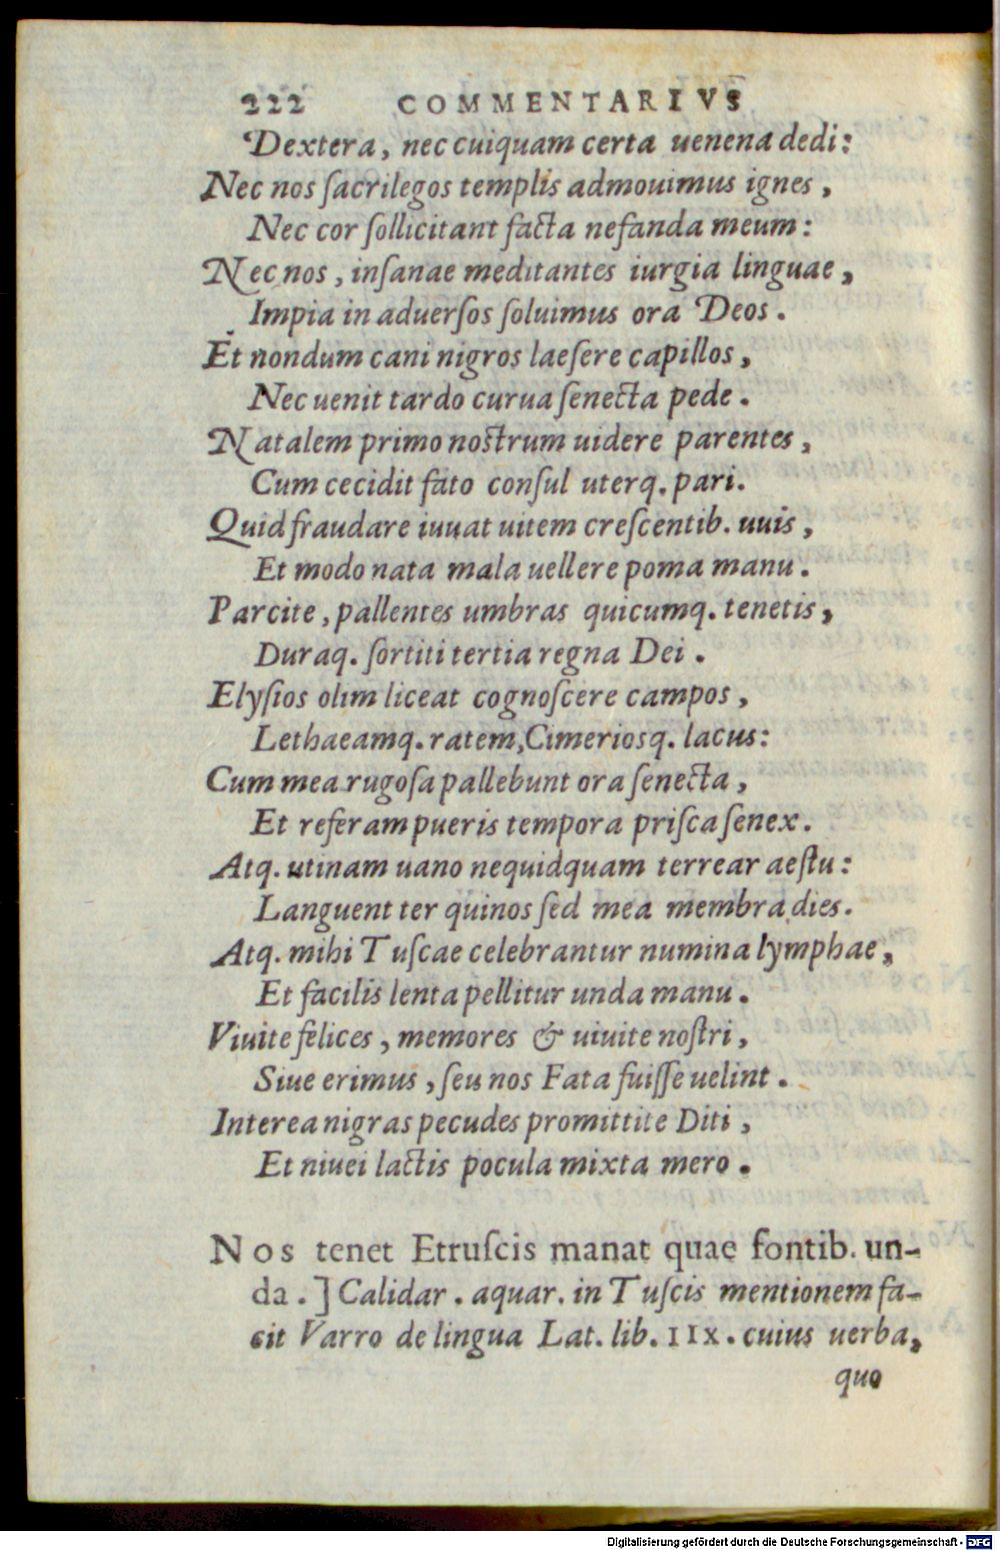 222 COMMENTARIVS
Dextera, nec cuiquam certa uenena dedi:
Nec nos ſacrilegos templis admouimus ignes,
Nec cor ſollicitant facta nefanda meum:
Nec nos, inſanae meditantes iurgia linguae,
Impia in aduerſos ſoluimus ora Deos.
Et nondum cani nigros laeſere capillos,
Nec uenit tardo curua ſenecta pede.
Natalem primo noſtrum uidere parentes,
Cum cecidit fato conſul uterq. pari.
Quid fraudare iuuat uitem creſcentib. uuis,
Et modo nata mala uellere poma manu.
Parcite, pallentes umbras quicumq. tenetis,
Duraq. ſortiti tertia regna Dei.
Elyſios olim liceat cognoſcere campos,
Lethaeamq. ratem, Cimeriosq. lacus:
Cum mea rugoſa pallebunt ora ſenecta,
Et referam pueris tempora priſca ſenex.
Atq. utinam uano nequidquam terrear aeſtu:
Languent ter quinos ſed mea membra dies.
Atq. mihi Tuſcae celebrantur numina lymphae,
Et facilis lenta pellitur unda manu.
Viuite felices, memores & uiuite noſtri,
Siue erimus, ſeu nos Fata fuiſſe uelint.
Interea nigras pecudes promittite Diti,
Et niuei lactis pocula mixta mero.
Nos tenet Etruſcis manat quae fontib. un-
da.] Calidar. aquar. in Tuſcis mentionem fa-
cit Varro de lingua Lat. lib. IIX. cuius uerba,
quo
Digitalisierung gefördert durch die Deutsche Forschungsgemeinschaft - DFG